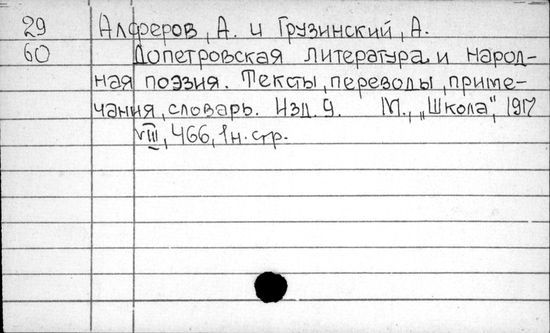 29 Алферов, А. и Грузинский, А.
60 Допетровская литература и народ-
ная поэзия. Тексты, переводы, приме-
чания, словарь. Изд. 9. М., „Школа", 1917
VIII, 466, 1 н. стр.